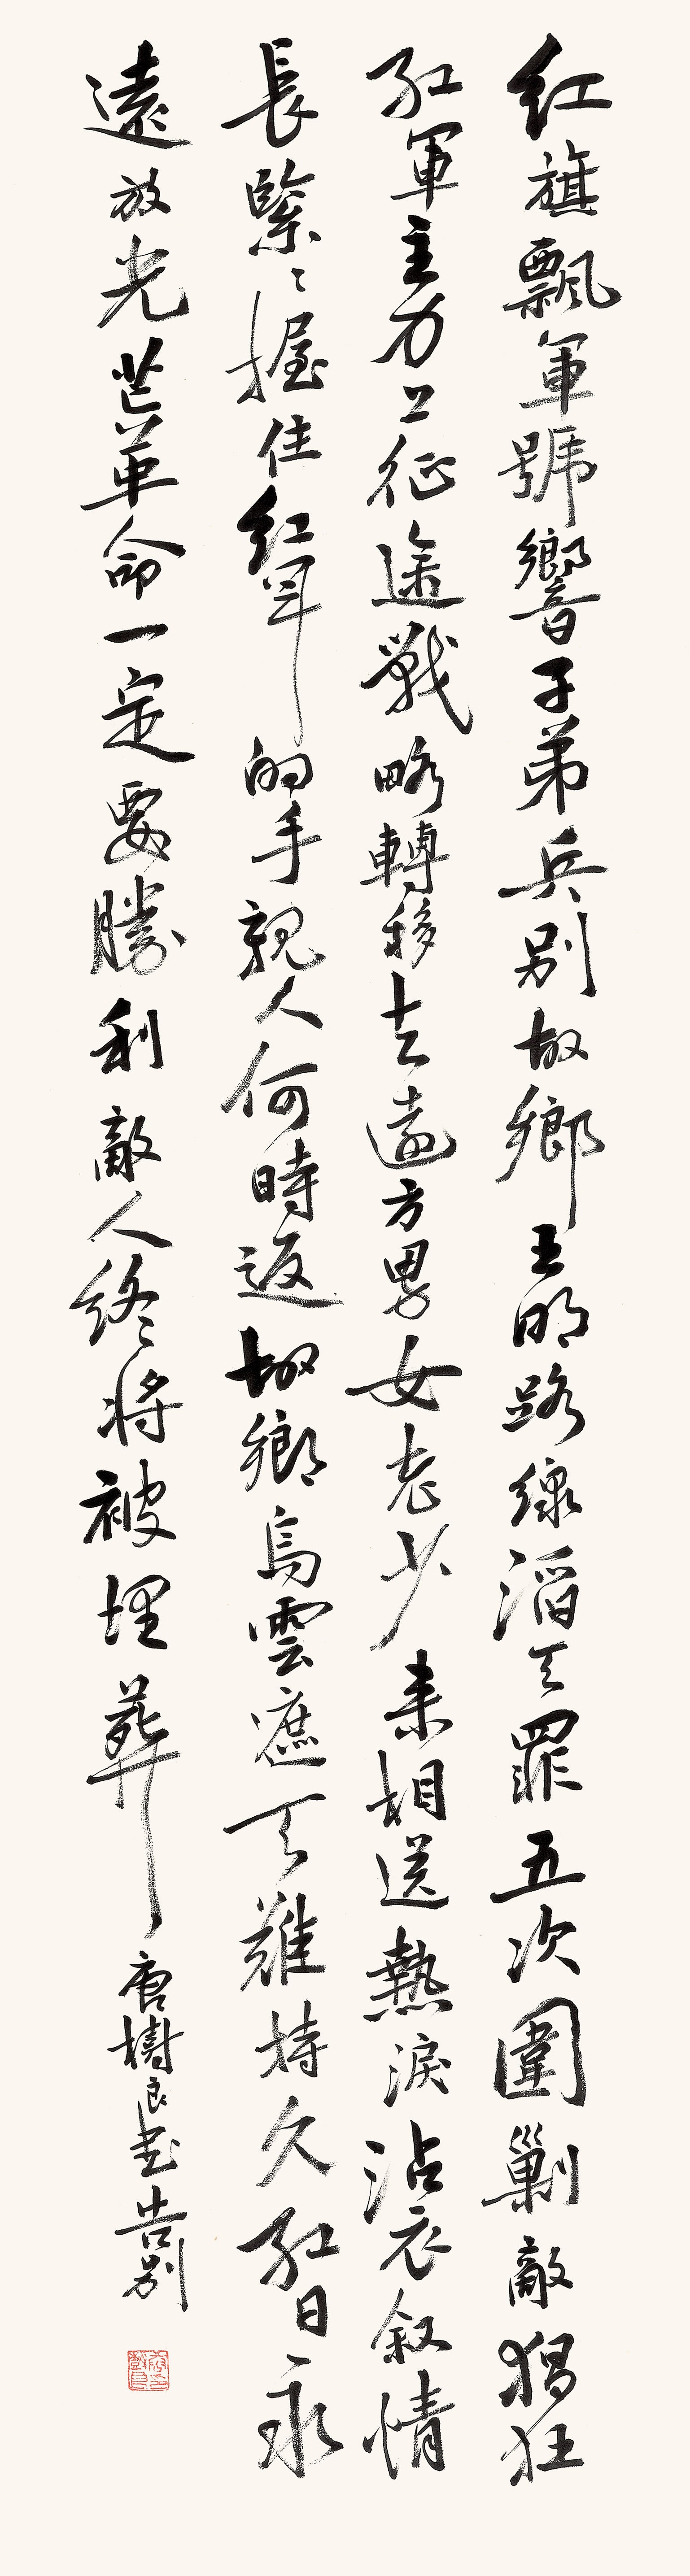 红旗飘軍號響子弟兵别故鄉王明路線滔天罪五次圍剿敵猖狂
红軍主力上征途戰略轉移去遠方男女老少来相送熱淚沾衣叙情
長緊緊握住红軍的手親人何時返故鄉烏雲遮天難持久红日永
遠放光芒革命一定要勝利敵人終将被埋葬 唐樹良书告别